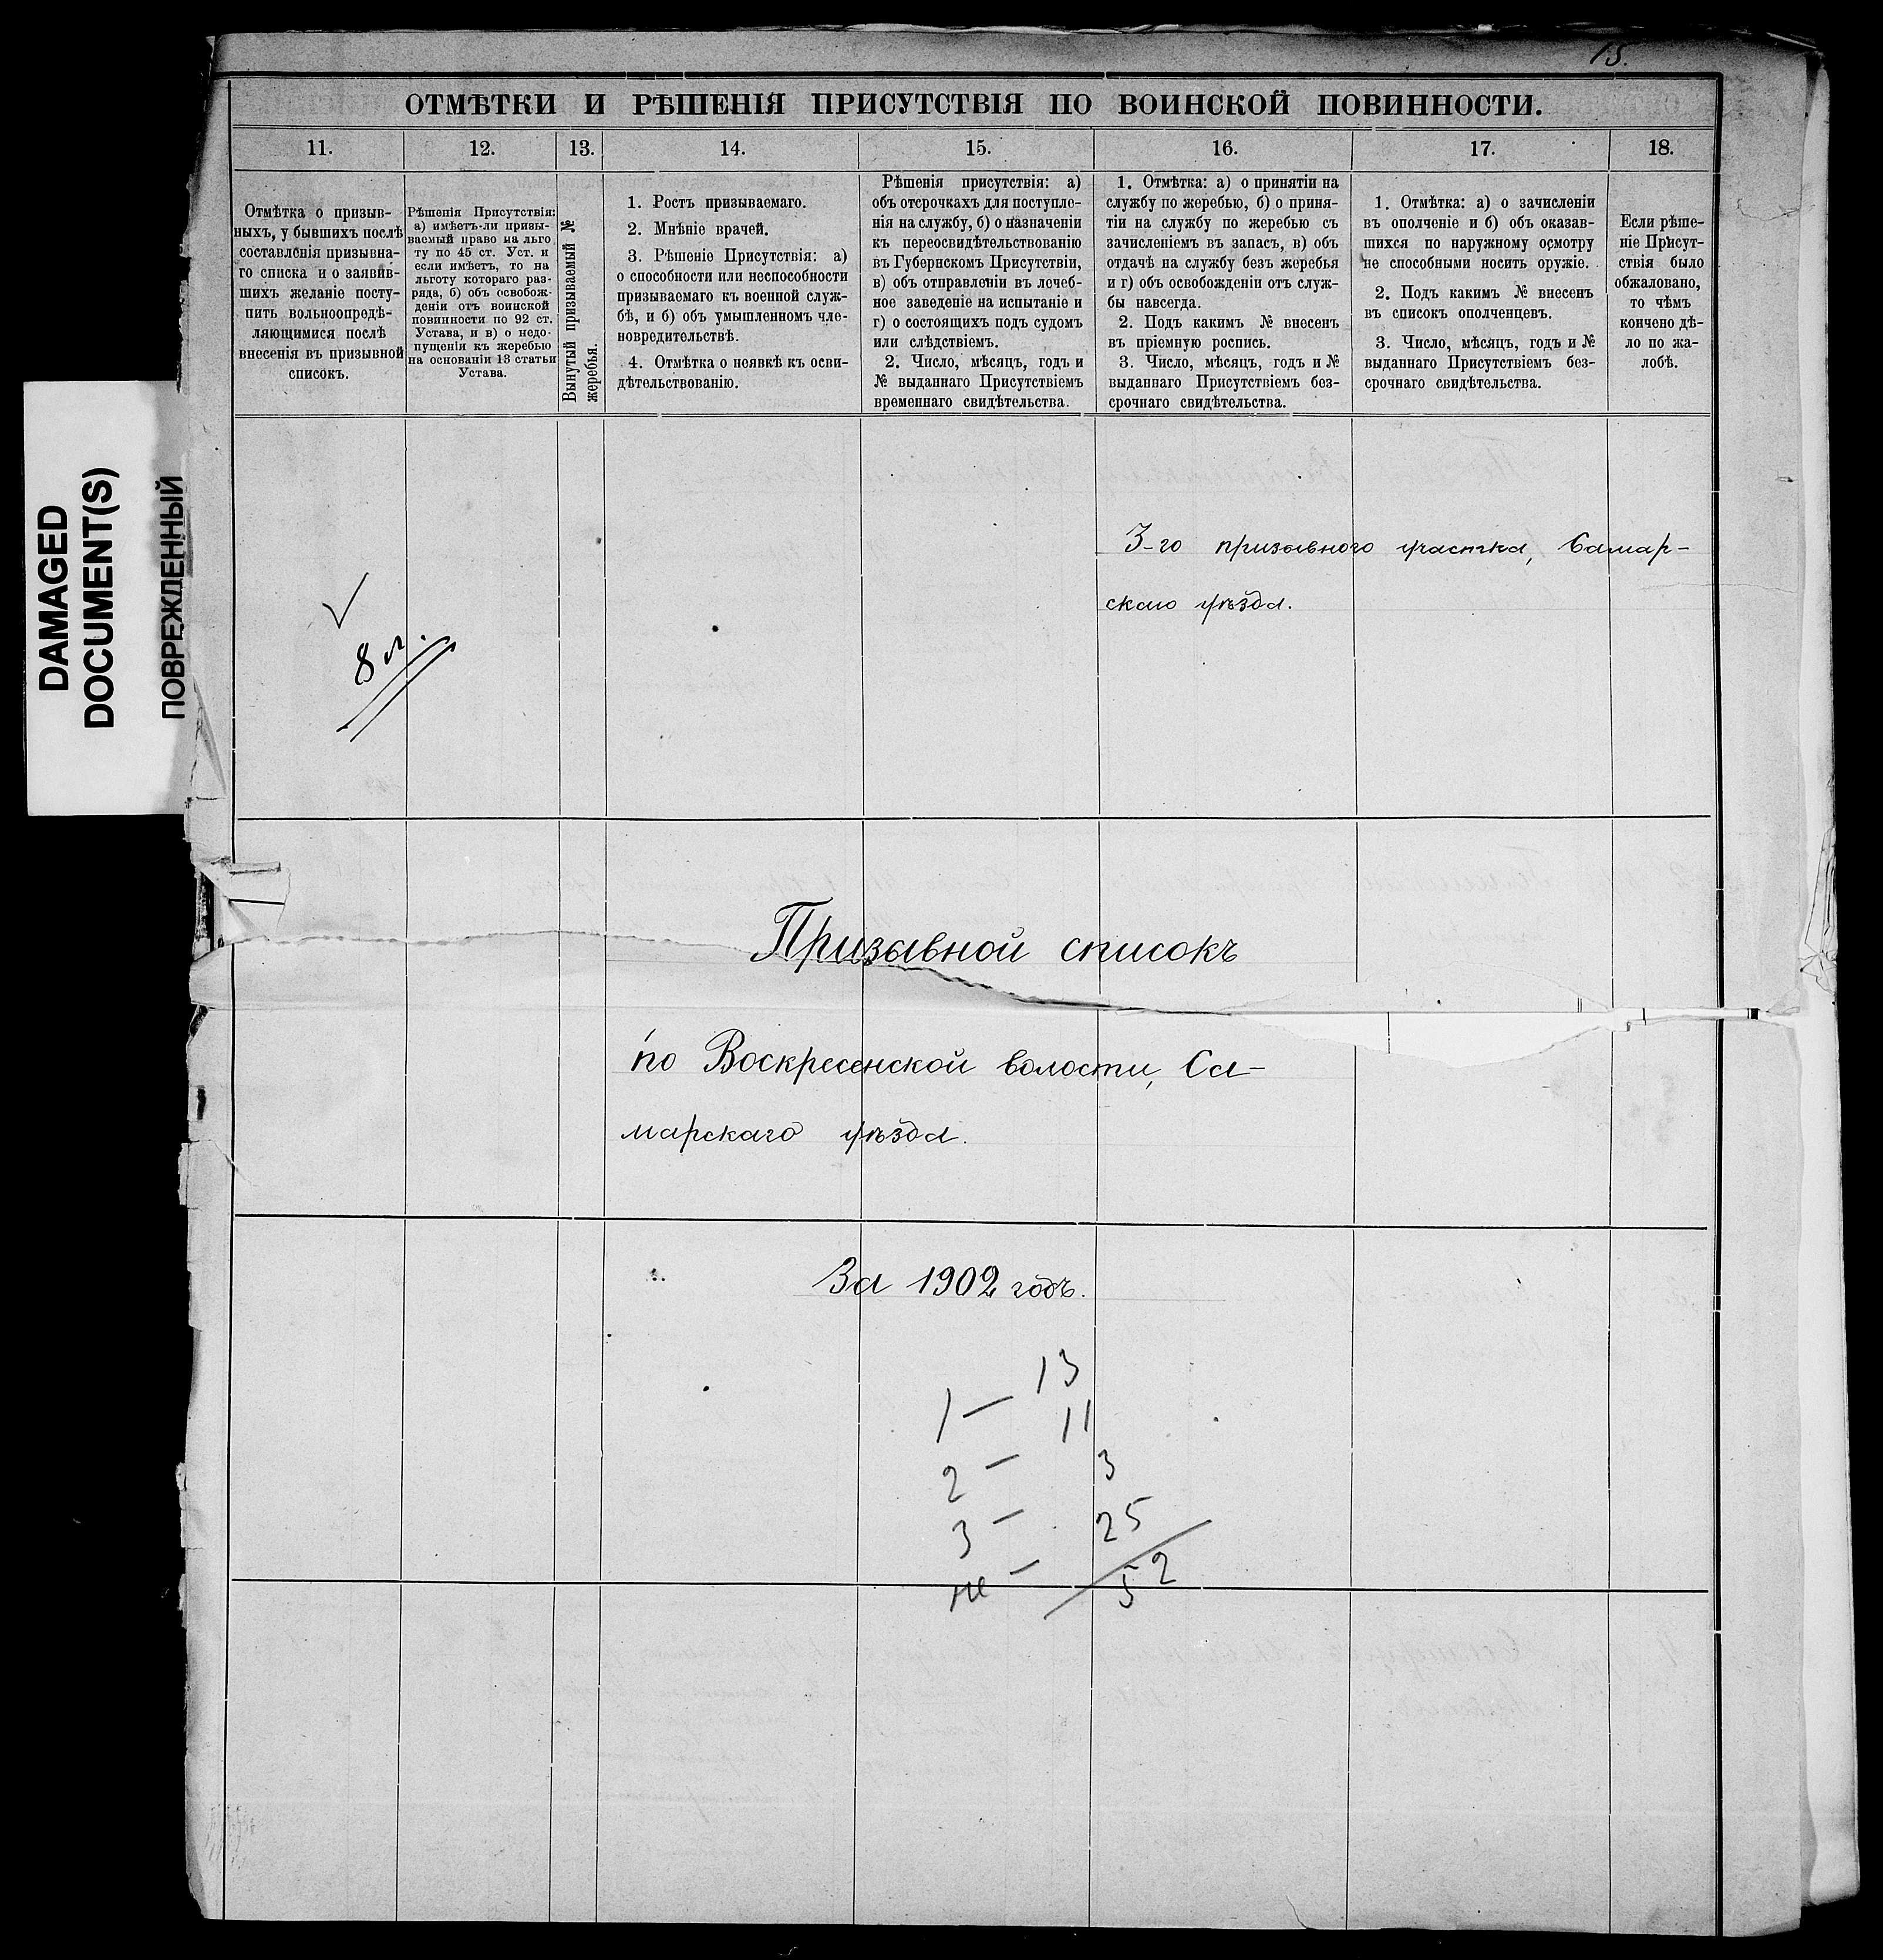 15.
ОТМѢТКИ И РѢШЕНІЯ ПРИСУТСТВІЯ ПО ВОИНСКОЙ ПОВИННОСТИ.
11.
12.
13.
14.
15.
16.
17.
18.
Отмѣтка о призыв-
ныхъ, у бывшихъ послѣ
составленія призывна-
го списка и о заявив-
шихъ желаніе посту-
пить вольноопредѣ-
ляющимися послѣ
внесенія въ призывной
списокъ.
Рѣшенія Присутствія:
а) имѣетъ-ли призы-
ваемый право на льго
ту по 45 ст. Уст. и
если имѣетъ, то на
льготу котораго раз-
ряда, б) объ освобож-
деніи отъ воинской
повинности по 92 ст.
Устава, и в) о недо-
пущеніи къ жеребью
на основаніи 13 статьи
Устава.
Вынутый призываемый №
жеребья.
1. Ростъ призываемаго.
2. Мнѣніе врачей.
3. Рѣшеніе Присутствія: а)
о способности или неспособности
призываемаго къ военной служ-
бѣ, и б) объ умышленномъ чле-
новредительствѣ.
4. Отмѣтка о неявкѣ къ осви-
дѣтельствованію.
Рѣшенія присутствія: а)
объ отсрочкахъ для поступле-
нія на службу, б) о назначеніи
къ переосвидѣтельствованію
въ Губернскомъ Присутствіи,
в) объ отправленіи въ лечеб-
ное заведеніе на испытаніе и
г) о состоящихъ подъ судомъ
или слѣдствіемъ.
2. Число, мѣсяцъ, годъ и
№ выданнаго Присутствіемъ
временнаго свидѣтельства.
1. Отмѣтка: а) о принятіи на
службу по жеребью, б) о приня-
тіи на службу по жеребью съ
зачисленіемъ въ запасъ, в) объ
отдачѣ на службу безъ жеребья
и г) объ освобожденіи отъ служ-
бы навсегда.
2. Подъ какимъ № внесенъ
въ пріемную роспись.
3. Число, мѣсяцъ, годъ и №
выданнаго Присутствіемъ без-
срочнаго свидѣтельства.
1. Отмѣтка: а) о зачисленіи
въ ополченіе и б) объ оказав-
шихся по наружному осмотру
не способными носить оружіе.
2. Подъ какимъ № внесенъ
въ списокъ ополченцевъ.
3. Число, мѣсяцъ, годъ и №
выданнаго Присутствіемъ без-
срочнаго свидѣтельства.
Если рѣше-
ніе Присут-
ствія было
обжаловано,
то чѣмъ
кончено дѣ-
ло по жа-
лобѣ.
DAMAGED
DOCUMENT(S)
ПОВРЕЖДЕННЫЙ
3-го призывного участка, Самар-
скаго уѣзда.
8 л.
Призывной списокъ
по Воскресенской волости, Са-
марскаго уѣзда.
За 1902 годъ.
1 — 13
2 — 11
3 — 3
не — 25
52